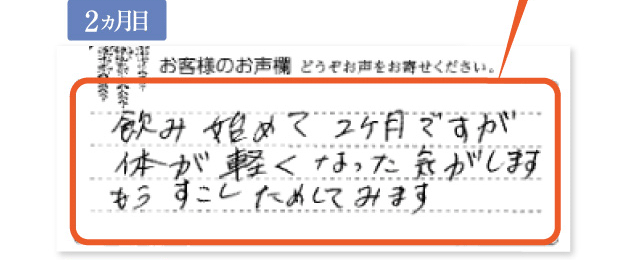 2ヵ月目
お客様のお声欄 どうぞお声をお寄せください。
飲み始めて2ケ月ですが
体が軽くなった気がします
もうすこしためしてみます